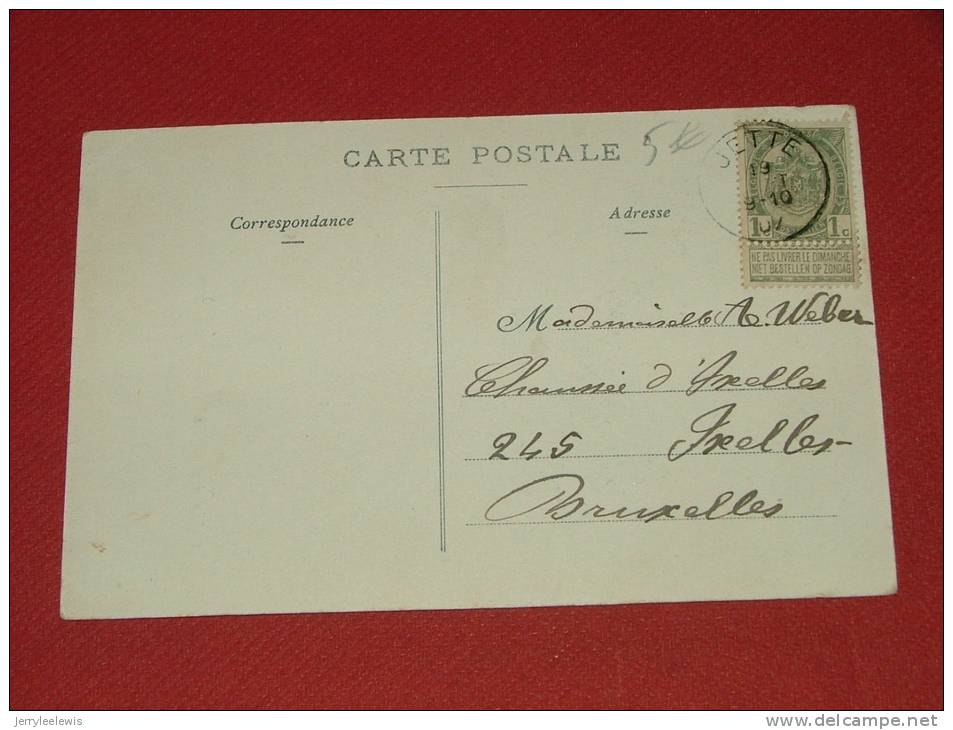 CARTE POSTALE
Correspondance
Adresse
JETTE
19
I
9-10
07
1c 1c
NE PAS LIVRER LE DIMANCHE
NIET BESTELLEN OP ZONDAG
Mademoiselle A. Weber
Chaussée d'Ixelles
245 Ixelles
Bruxelles
jerryleelewis
www.delcampe.net